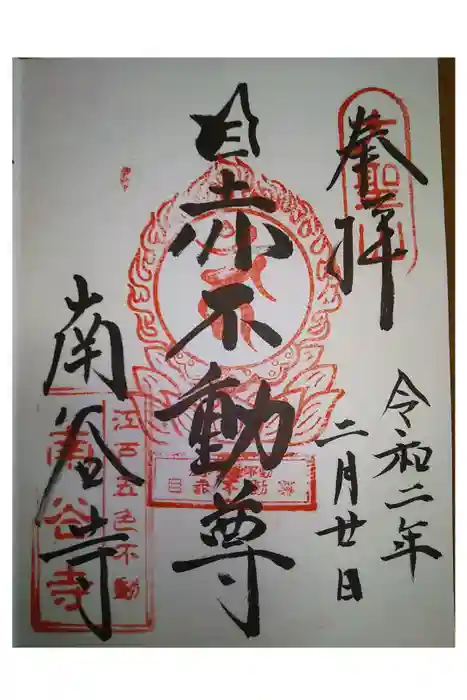 奉拝
令和二年
二月廿日
目赤不動尊
南谷寺
江戸五色不動
南谷寺